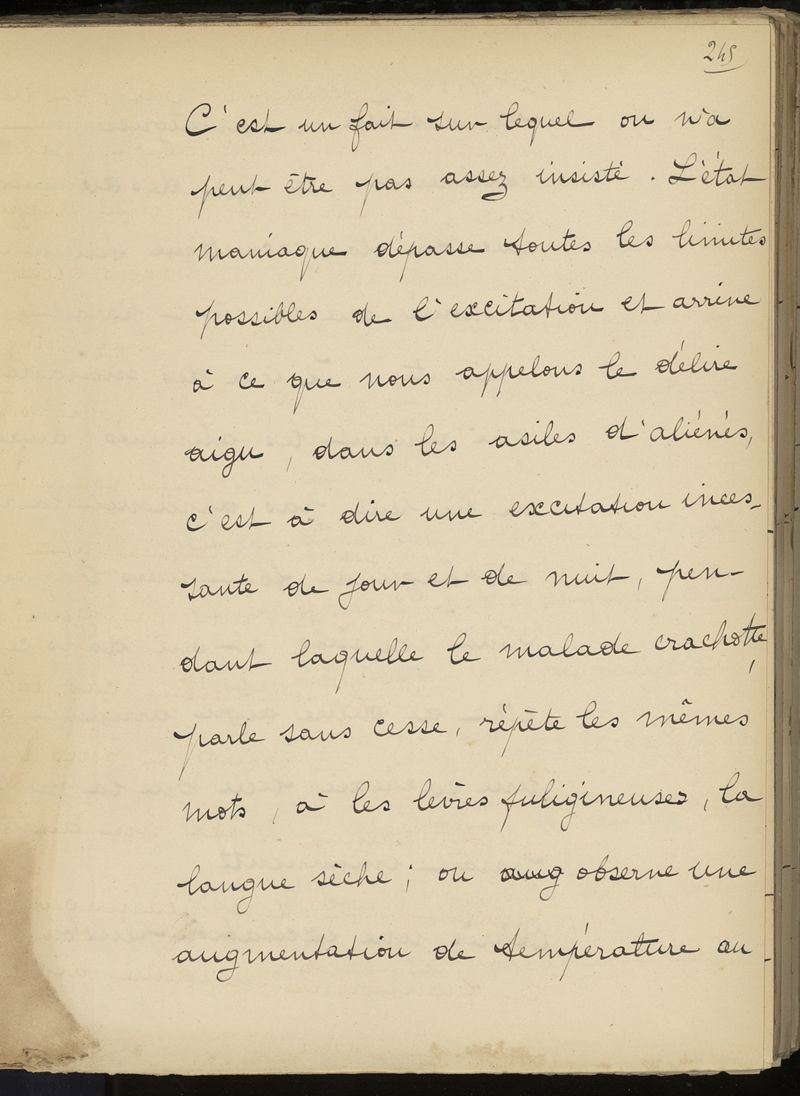 245
C'est un fait sur lequel on n'a
peut être pas assez insisté. L'état
maniaque dépasse toutes les limites
possibles de l'excitation et arrive
à ce que nous appelons le délire
aigu, dans les asiles d'aliénés,
c'est à dire une excitation inces-
sante de jour et de nuit, pen-
dant laquelle le malade crachotte,
parle sans cesse, répète les mêmes
mots, a les lèvres fuligineuses, la
langue sèche; on aug observe une
augmentation de température au